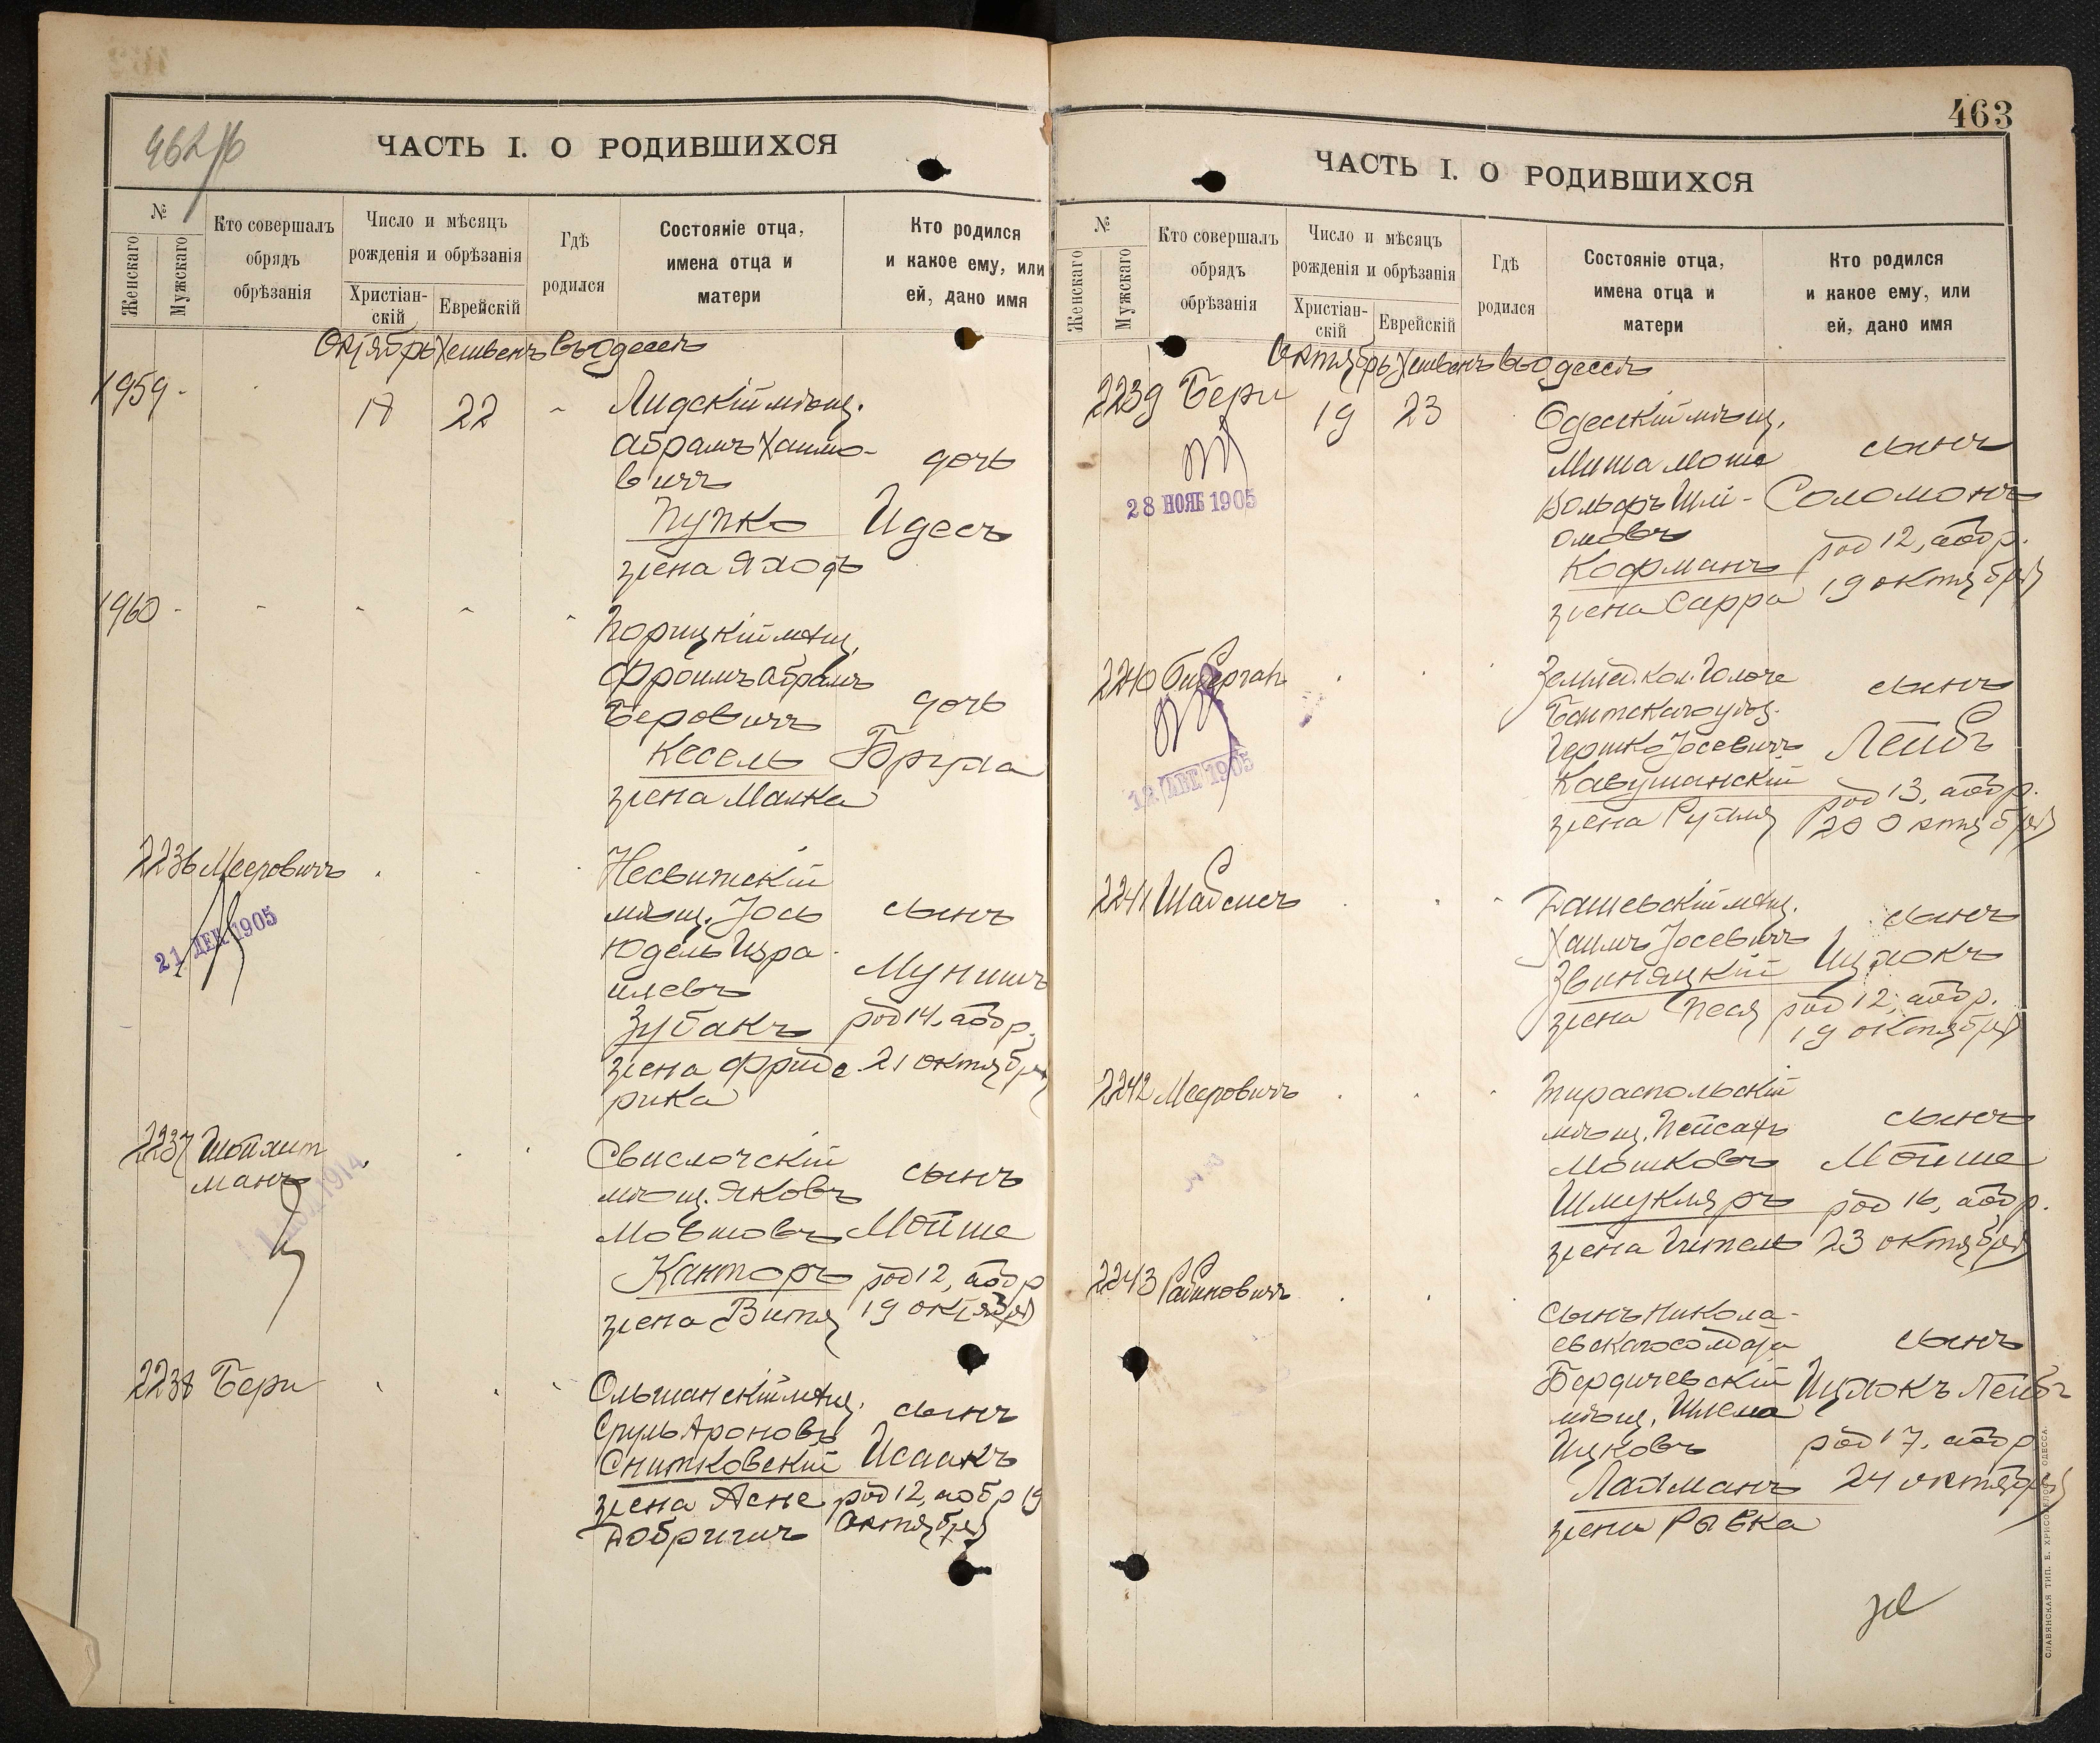 462/б
ЧАСТЬ I. О РОДИВШИХСЯ
№
Женскаго
Мужскаго
Кто совершалъ
обрядъ
обрѣзанія
Число и мѣсяцъ
рожденія и обрѣзанія
Христіан-
скій
Еврейскій
Гдѣ
родился
Состояніе отца,
имена отца и
матери
Кто родился
и какое ему, или
ей, дано имя
Октябрь Хешвенъ въ Одессѣ
1959 -
18 22
Лидскій мѣщ.
Абрамъ Хаимо-
вичъ дочь
Пупко Идесъ
жена Яходъ
1960 -
Порицкій мѣщ.
Фроимъ Абрамъ
Беровичъ дочь
Кесель Бруха
жена Малка
2236 Мееровичъ
21 ДЕК 1905
Несвижскій
мѣщ. Іось сынъ
Юдель Изра-
илевъ Мунишъ
Зубакъ род 14, а обр.
жена Фриде 21 октября
рика
2237 Шойхит
манъ
1914
Свислочскій
мѣщ. Яковъ сынъ
Мовшовъ Мойше
Канторъ род 12, а обр
жена Витя 19 октября
2238 Бери
Ольшанскій мѣщ.
Сруль Ароновъ сынъ
Снитковскій Исаакъ
жена Асне род 12, а обр 19
Добришъ октября
463
ЧАСТЬ I. О РОДИВШИХСЯ
№
Женскаго
Мужскаго
Кто совершалъ
обрядъ
обрѣзанія
Число и мѣсяцъ
рожденія и обрѣзанія
Христіан-
скій
Еврейскій
Гдѣ
родился
Состояніе отца,
имена отца и
матери
Кто родился
и какое ему, или
ей, дано имя
Октябрь Хешвенъ въ Одессѣ
2239 Бери 19 23
28 НОЯБ 1905
Одесскій мѣщ.
Миша Моше сынъ
Вольфъ Шлі- Соломонъ
омовъ род 12, а обр.
Кофманъ 19 октября
жена Сарра
2240
12 ДЕК 1905
Землед. кол. сынъ
Балтскаго уѣз.
Гершко Іосевичъ Лейбъ
Кавушанскій род 13, а обр.
жена Рухля 20 октября
2241 Шабсисъ
Дашевскій мѣщ. сынъ
Хаимъ Іосевичъ
Звиняцкій Ицхокъ
жена Песя род 12, а обр.
19 октября
2242 Мееровичъ
Тираспольскій
мѣщ. Пейсахъ сынъ
Мошковъ Мойше
Шмукляръ род 16, а обр.
жена Гитель 23 октября
2243 Рабиновичъ
сынъ никола-
евскаго солдата сынъ
Бердичевскій Ицхокъ Лейбъ
мѣщ. Шлема
Ицковъ род 17, а обр
Лахманъ 24 октября
жена Рывка
СЛАВЯНСКАЯ ТИП. Е. ХРИСОГЕЛОСЪ, ОДЕССА.